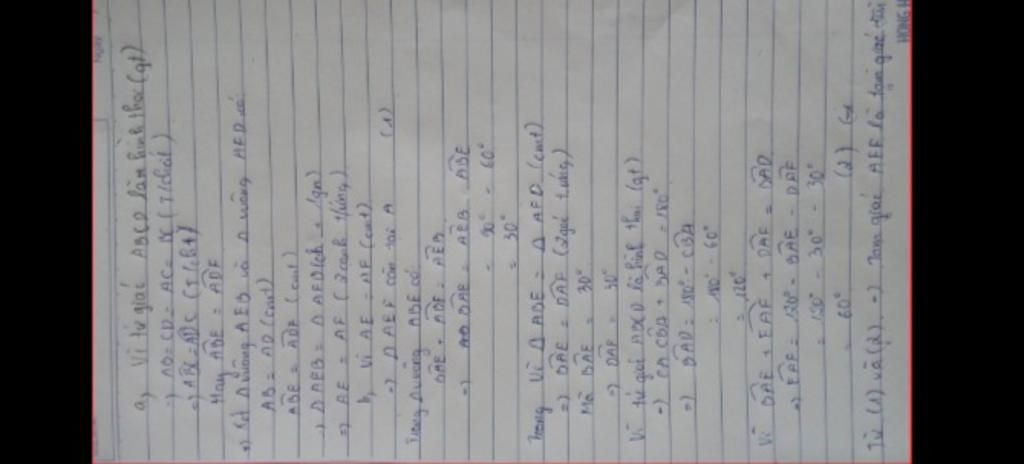 a, Vì tứ giác ABCD là hình thoi (gt)
=) AB = CD = AC = BC (T/chất)
=) ABC = ADC (T/chất)
Hay ABE = ADF
+) Xét Δ vuông AEB và Δ vuông AFD có:
AB = AD (cmt)
ABE = ADF (cmt)
=) Δ AEB = Δ AFD (ch - gn)
=) AE = AF (2 cạnh t/ứng)
b, Vì AE = AF (cmt)
=) Δ AEF cân tại A (1)
Trong Δ vuông ABE có:
BAE + ABE = AEB
=) BAE = AEB - ABE
= 90° - 60°
= 30°
Vì Δ ABE = Δ AFD (cmt)
=) BAE = DAF (2 góc t/ứng)
Mà BAE = 30°
=) DAF = 30°
Vì tứ giác ABCD là hình thoi (gt)
=) CBA + BAD = 180°
=) BAD = 180° - CBA
= 180° - 60°
= 120°
Vì BAE + EAF + DAF = BAD
=) EAF = 120° - BAE - DAF
= 120° - 30° - 30°
= 60° (2)
Từ (1) và (2) =) Tam giác AEF là tam giác
HONG H